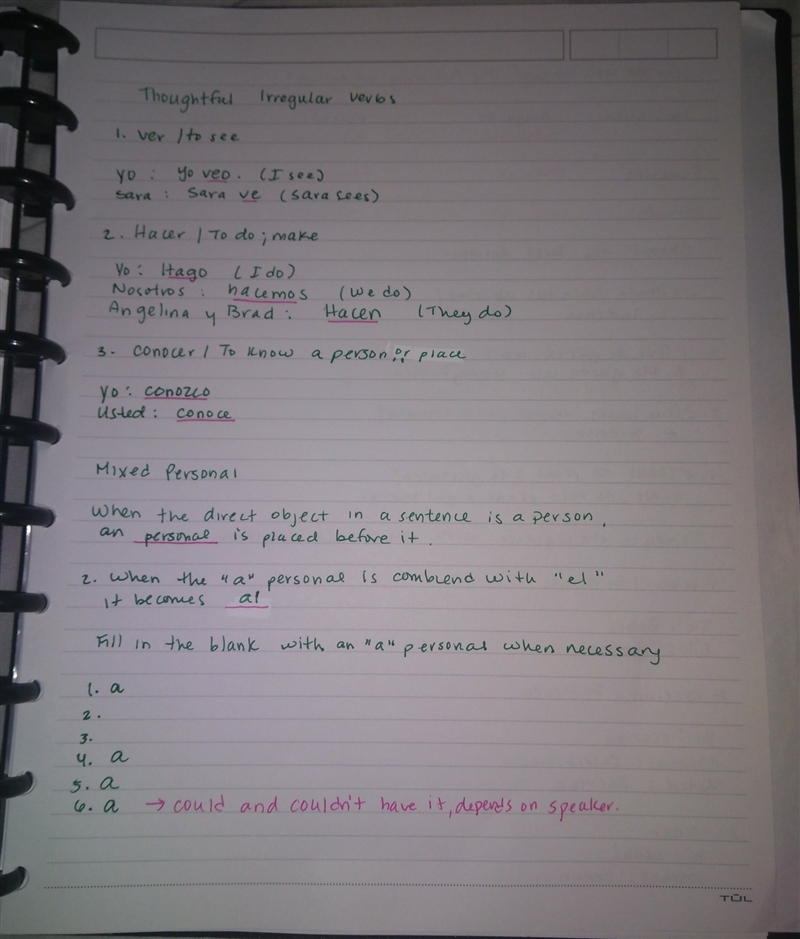 Thoughtful Irregular verbs
1. ver / to see
yo : Yo veo. (I see)
Sara : Sara ve (Sara sees)
2. Hacer / To do ; make
Yo : Hago (I do)
Nosotros : hacemos (We do)
Angelina y Brad : Hacen (They do)
3. conocer / To know a person or place
yo : conozco
Usted : conoce
Mixed Personal
When the direct object in a sentence is a person,
an personal is placed before it.
2. When the "a" personal is combiend with "el"
it becomes al
Fill in the blank with an "a" personal when necessary
1. a
2.
3.
4. a
5. a
6. a → could and couldn't have it, depends on speaker.
TŪL